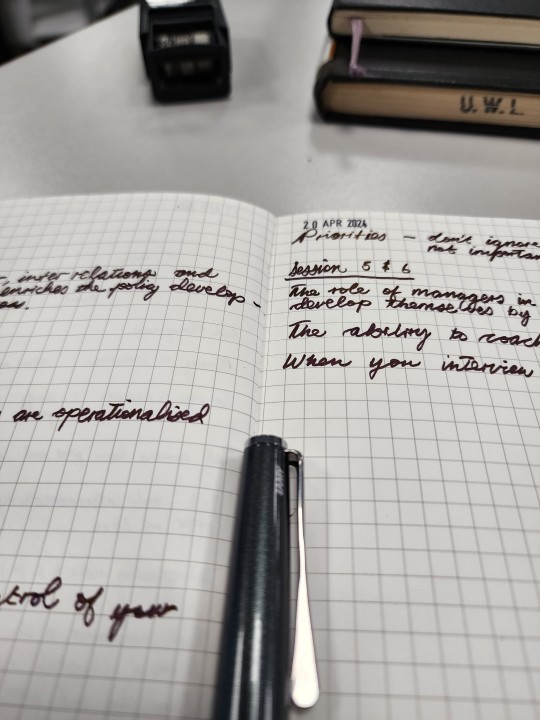 U.W.L
inter relations and
enriches the policy develop-
are operationalised
trol of your
20 APR 2024
Priorities - don't ignore
not important
Session 5 & 6
The role of managers in
develop themselves by
The ability to coach
When you interview
LAMY